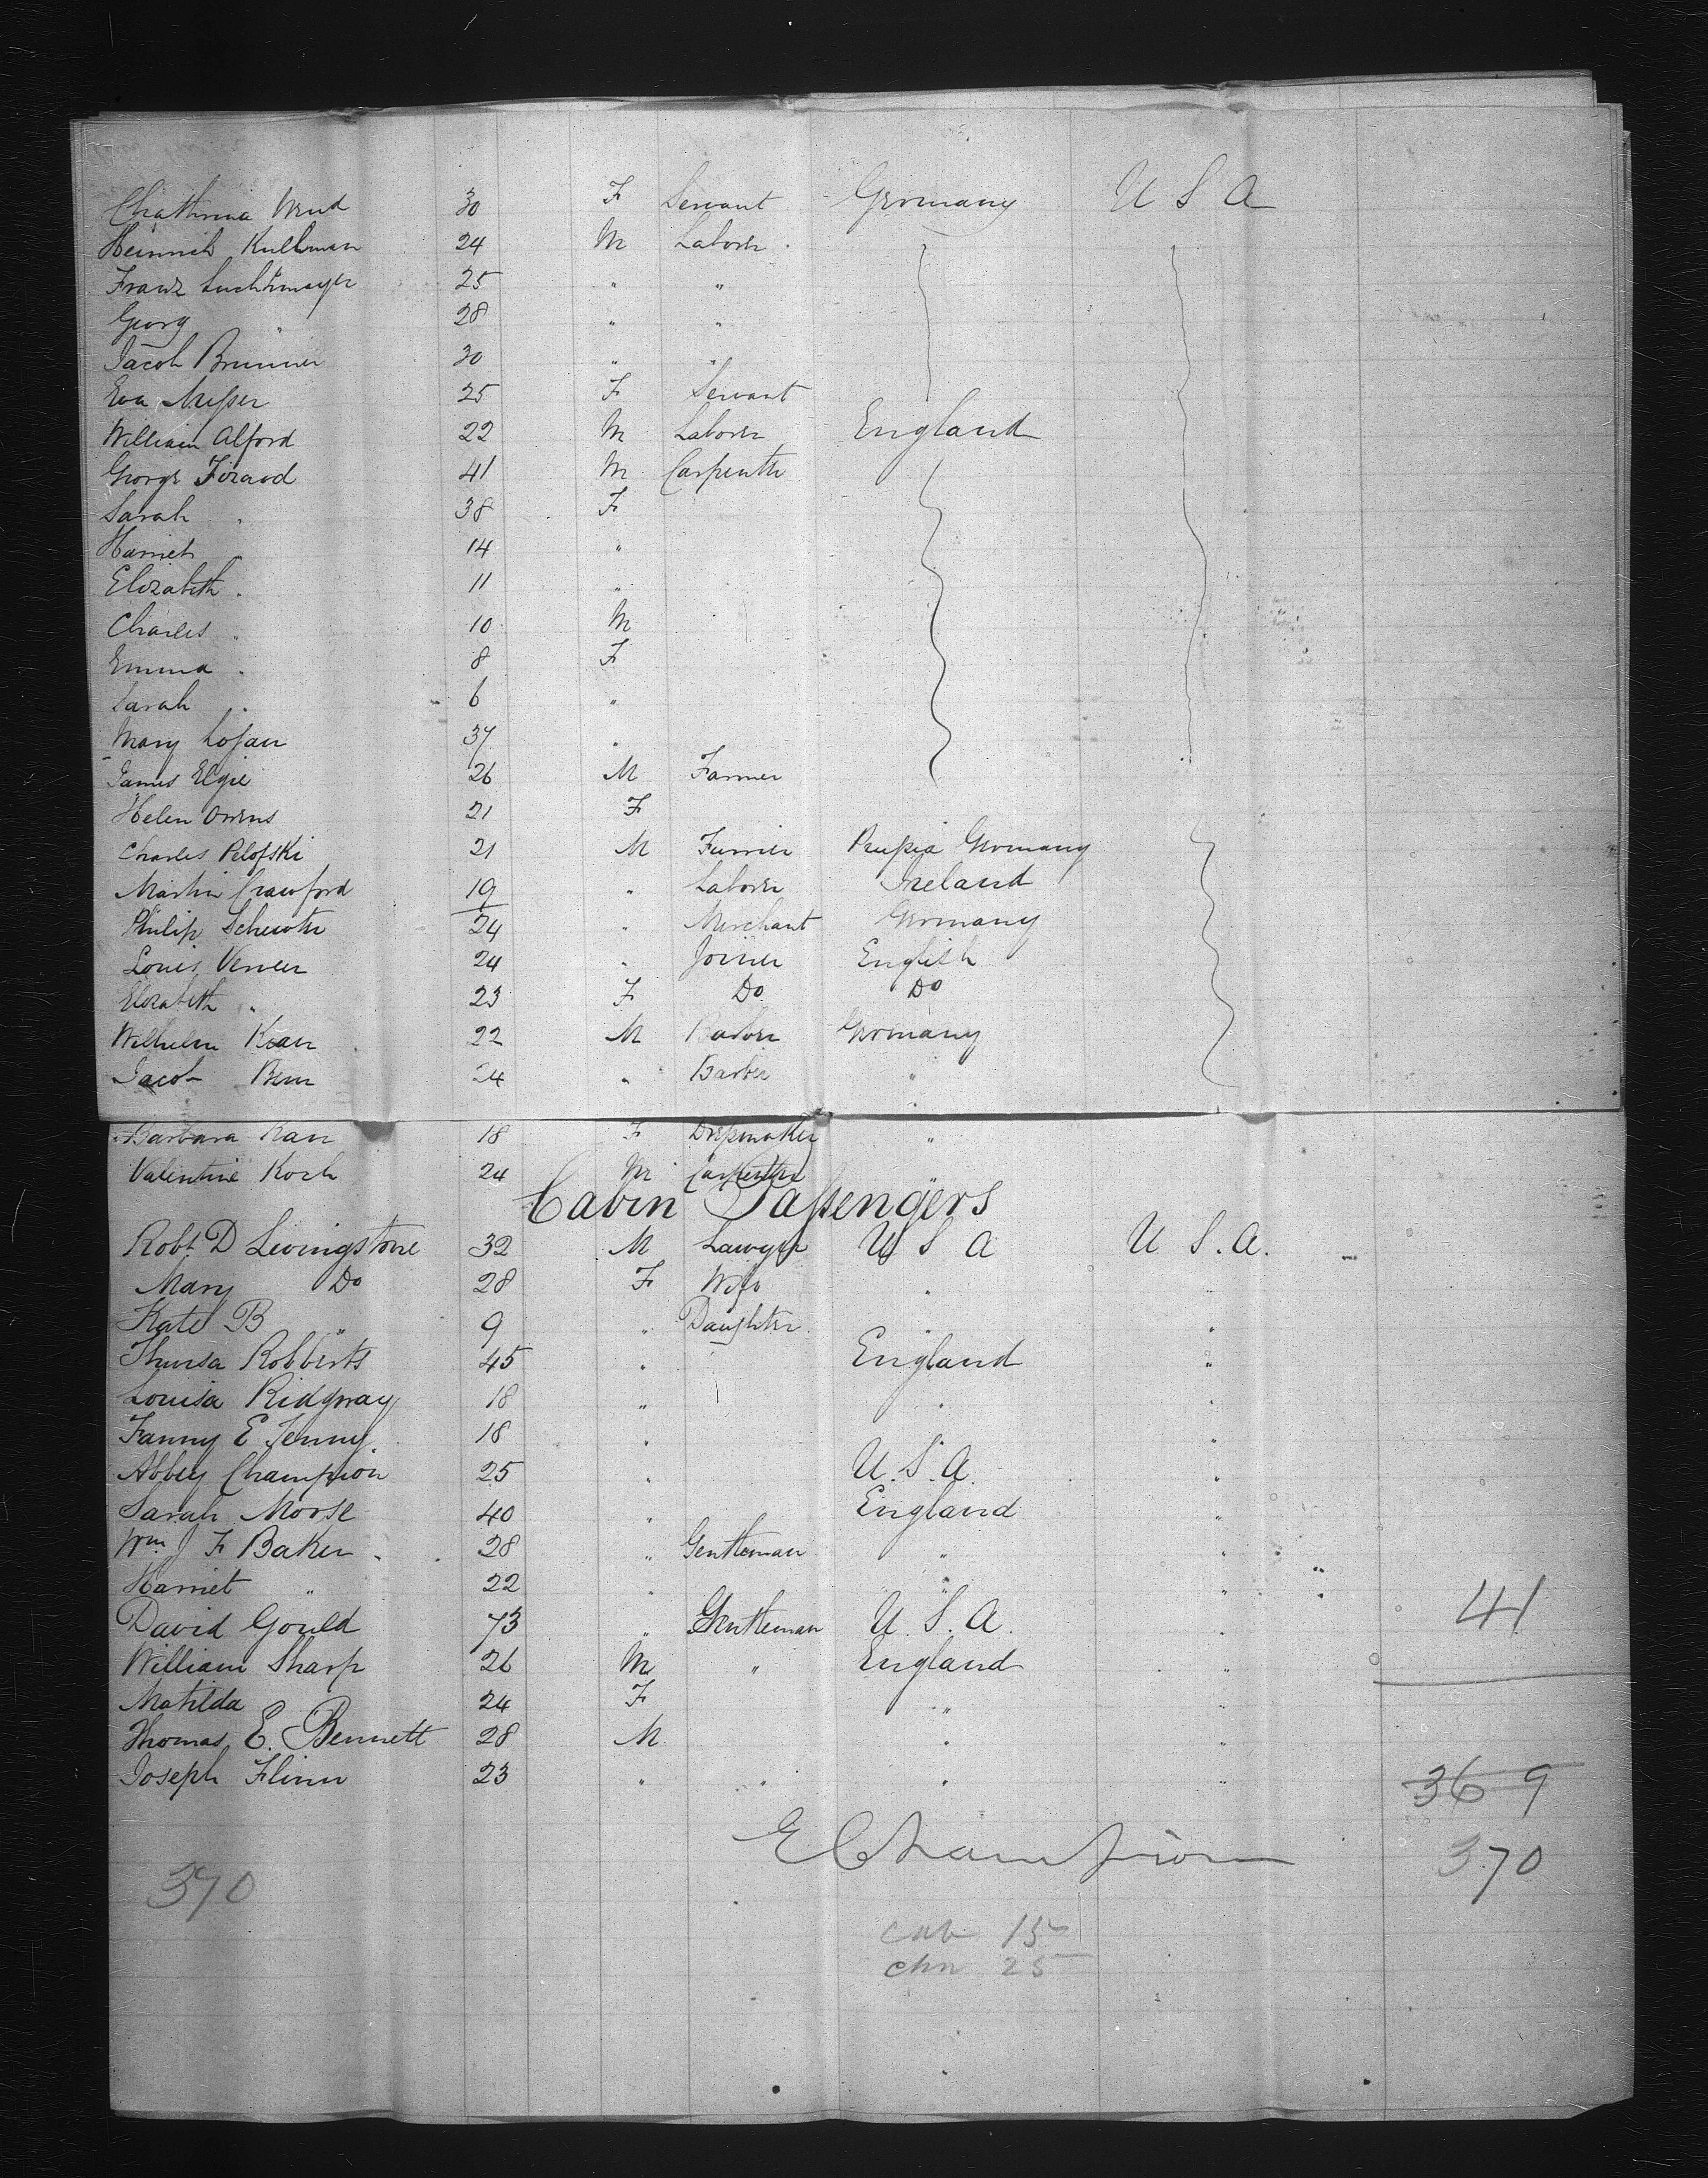 Chathrina Wend 30 F Servant Germany U S A
Heinrich Kullman 24 M Laborer
Franz Luchtmayer 25 " "
Georg " 28 " "
Jacob Brunner 30 " "
Eva Meſser 25 F Servant
William Alford 22 M Laborer England
George 41 M Carpenter
Sarah " 38 F
Harriet 14 "
Elizabeth " 11 "
Charles " 10 M
Emma " 8 F
Sarah " 6 "
Mary 37 "
James Elgie 26 M Farmer
Helen Owens 21 F
Charles Peloſski 21 M Furrier Pruſsia Germany
Martin Crawford 19 " Laborer Ireland
Philip 24 " Merchant Germany
Louis 24 " Joiner English
Elizabeth " 23 F Do Do
Wilhelm 22 M Germany
Jacob 24 " Barber "
Barbara 18 F Dreſsmaker "
Valentine Koch 24 M Carpenter "
Cabin Paſsengers
Robt. D Livingstone 32 M Lawyer U S A U S. A.
Mary Do 28 F Wife " "
Kate B " 9 " Daughter " "
Robberts 45 " England "
Louisa Ridgway 18 " " "
Fanny E Jenny 18 " " "
Abbey Champion 25 " U. S. A. "
Sarah Morse 40 " England "
Wm J F Baker 28 " Gentleman " "
Harriet " 22 " " "
David Gould 73 " Gentleman U. S. A. " 41
William Sharp 26 M " England "
Matilda 24 F " "
Thomas E. Bennett 28 M " "
Joseph Flinn 23 " " " "
369
E Champion
370 370
cab 15
chn 25